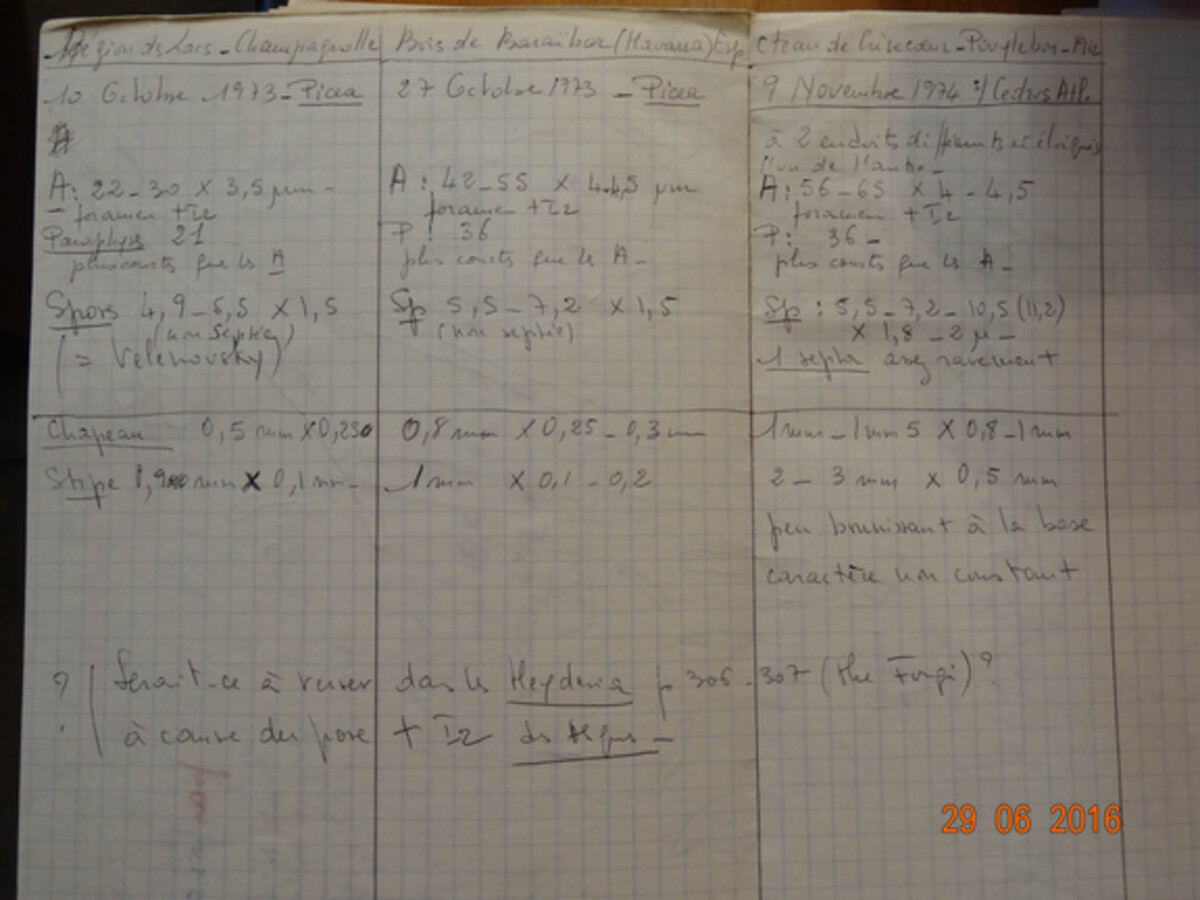 Région des Lacs - Champagnolle
10 Octobre 1973 - Picea
A : 22-30 X 3,5 µm -
foramen + I2
Paraphyses 21
plus courts que les A
Spores 4,9-5,5 X 1,5
(non Septées)
(= Velenovsky)
Chapeau 0,5 mm X 0,250
Stipe mm X 0,1 mm -
Bois de Baraïbar (Navarra) Esp
27 Octobre 1973 - Picea
A : 42-55 X 4-4,5 µm
foramen + I2
P : 36
plus courts que les A -
Sp 5,5-7,2 X 1,5
(non septée)
0,8 mm X 0,25-0,3 mm
1 mm X 0,1-0,2
9 Novembre 1974 s/ Cedrus Atl.
à 2 endroits différents et éloignés
l'un de l'autre -
A : 56-65 X 4-4,5
foramen + I2
P : 36 -
plus courts que les A -
Sp : 5,5-7,2-10,5 (11,2)
X 1,8-2 µ -
1 septa assez rarement
1 mm - 1 mm 5 X 0,8-1 mm
2-3 mm X 0,5 mm
peu brunissant à la base
caractère non constant
? Serait-ce à verser dans les Heyderia p 306-307 (the Fungi) ?
à cause du pore + I2 des Asques -
29 06 2016